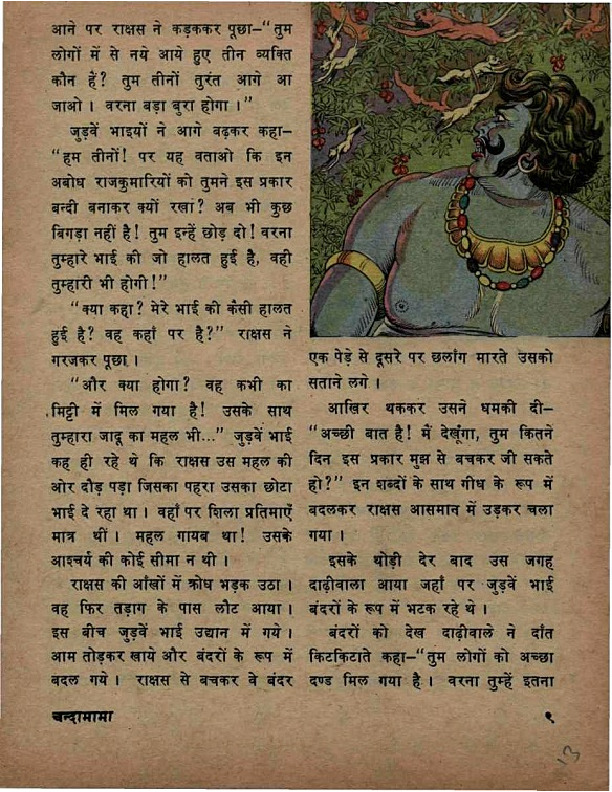 आने पर राक्षस ने कड़ककर पूछा–"तुम
लोगों में से नये आये हुए तीन व्यक्ति
कौन हैं? तुम तीनों तुरंत आगे आ
जाओ। वरना बड़ा बुरा होगा।"
जुड़वें भाइयों ने आगे बढ़कर कहा–
"हम तीनों! पर यह बताओ कि इन
अबोध राजकुमारियों को तुमने इस प्रकार
बन्दी बनाकर क्यों रखा? अब भी कुछ
बिगड़ा नहीं है! तुम इन्हें छोड़ दो! वरना
तुम्हारे भाई की जो हालत हुई है, वही
तुम्हारी भी होगी!"
"क्या कहा? मेरे भाई की कैसी हालत
हुई है? वह कहाँ पर है?" राक्षस ने
गरजकर पूछा।
"और क्या होगा? वह कभी का
मिट्टी में मिल गया है! उसके साथ
तुम्हारा जादू का महल भी..." जुड़वें भाई
कह ही रहे थे कि राक्षस उस महल की
ओर दौड़ पड़ा जिसका पहरा उसका छोटा
भाई दे रहा था। वहाँ पर शिला प्रतिमाएँ
मात्र थीं। महल गायब था! उसके
आश्चर्य की कोई सीमा न थी।
राक्षस की आँखों में क्रोध भड़क उठा।
वह फिर तड़ाग के पास लौट आया।
इस बीच जुड़वें भाई उद्यान में गये।
आम तोड़कर खाये और बंदरों के रूप में
बदल गये। राक्षस से बचकर वे बंदर
एक पेड़े से दूसरे पर छलांग मारते उसको
सताने लगे।
आखिर थककर उसने धमकी दी–
"अच्छी बात है! मैं देखूंगा, तुम कितने
दिन इस प्रकार मुझ से बचकर जी सकते
हो?" इन शब्दों के साथ गीध के रूप में
बदलकर राक्षस आसमान में उड़कर चला
गया।
इसके थोड़ी देर बाद उस जगह
दाढ़ीवाला आया जहाँ पर जुड़वें भाई
बंदरों के रूप में भटक रहे थे।
बंदरों को देख दाढ़ीवाले ने दाँत
किटकिटाते कहा–"तुम लोगों को अच्छा
दण्ड मिल गया है। वरना तुम्हें इतना
चन्दामामा
९
13